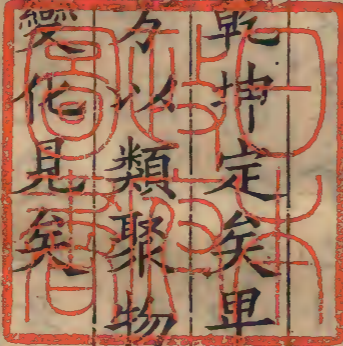 乾坤定矣卑
方以類聚物
變化見矣